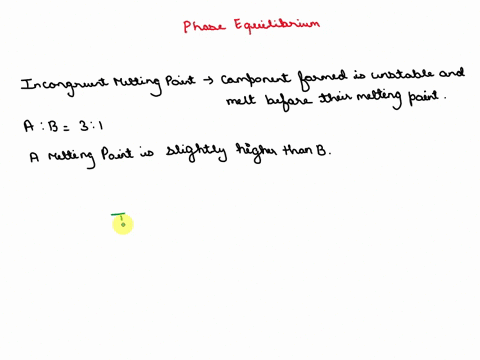 Phase Equilibrium
Incongruent Melting Point → Component formed is unstable and
melt before their melting point.
A : B = 3 : 1
A Melting Point is slightly higher than B.
T